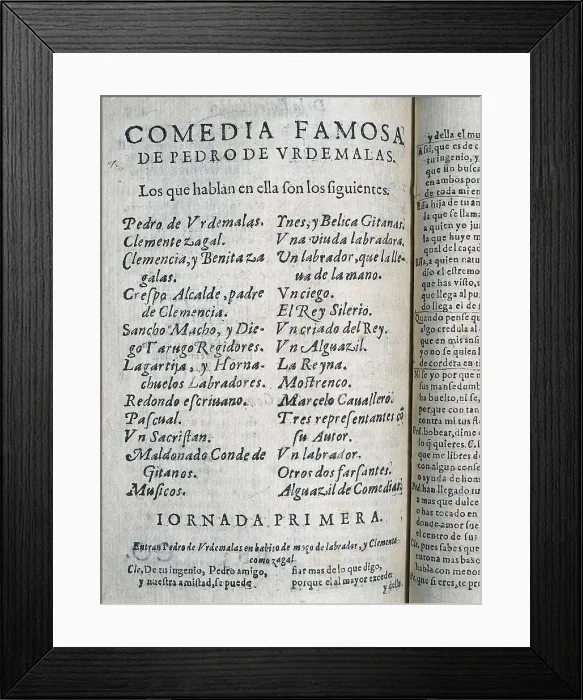 COMEDIA FAMOSA
DE PEDRO DE VRDEMALAS.
Los que hablan en ella ſon los ſiguientes.
Pedro de Vrdemalas.
Clemente zagal.
Clemencia, y Benita za
galas.
Creſpo Alcalde, padre
de Clemencia.
Sancho Macho, y Die-
go Tarugo Regidores.
Lagartija, y Horna-
chuelos Labradores.
Redondo eſcriuano.
Paſcual.
Vn Sacriſtan.
Maldonado Conde de
Gitanos.
Muſicos.
Ynes, y Belica Gitanas.
Vna viuda labradora.
Vn labrador, que la lle-
ua de la mano.
Vn ciego.
El Rey Silerio.
Vn criado del Rey.
Vn Alguazil.
La Reyna.
Moſtrenco.
Marcelo Cauallero.
Tres repreſentantes cō
ſu Autor.
Vn labrador.
Otros dos farſantes.
Alguazil de Comedias.
IORNADA PRIMERA.
Entran Pedro de Vrdemalas en habito de moço de labrador, y Clemente
como zagal.
Cle, De tu ingenio, Pedro amigo,
y nueſtra amiſtad, ſe puede
fiar mas de lo que digo,
porque el al mayor excede
y della
y della el mu
Aſsi, que es de c
tu ingenio, y
que ſin buſca
en ambos por
de toda mi en
Eſſa hija de tu an
la que ſe llama
a quien yo ju
la que huye m
qual del caçad
Eſſa, a quien natu
dio el eſtremo
que has viſto, s
que llega al pu
do llega el de
Quando penſe qu
algo credula al
que en mis anſi
yo no ſe quien l
de cordera en t
Ni ſe yo por que n
ſus manſedumb
ha buelto, ni ſe,
porque con tan
contra mi tus fl
Ped. bobear, dime
lo q̃ quieres. C.
que me libres d
con algun conſe
o ayuda de hom
Ped. han llegado tu
a mas que dulce
o has tocado en
donde amor ſue
el centro de ſus
Cle, pues ſabes que
entona mas baxo
habla con menos
que ſi eres, te pr